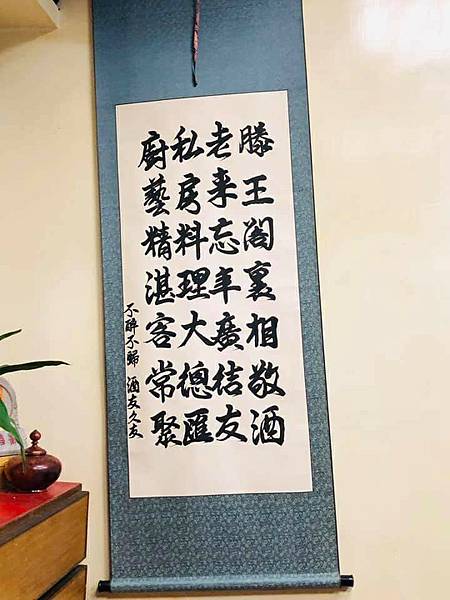 滕王閣裏相敬酒
老来忘年廣结友
私房料理大總匯
廚藝精湛客常聚
不醉不歸 酒友久友